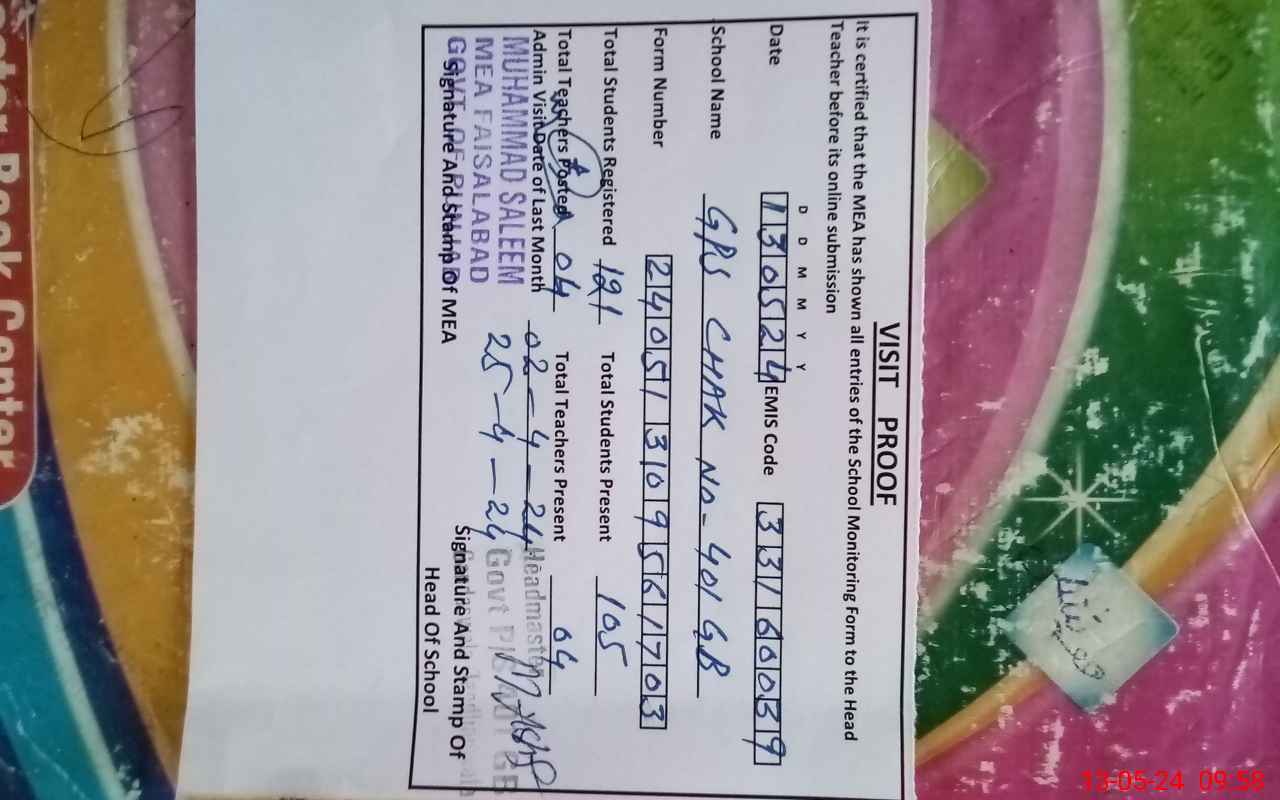 VISIT PROOF
It is certified that the MEA has shown all entries of the School Monitoring Form to the Head
Teacher before its online submission
D D M M Y Y
Date 130524 EMIS Code 33160039
School Name GPS CHAK NO- 401 GB
Form Number 240513109561703
Total Students Registered 121 Total Students Present 105
Total Teachers Posted 04 Total Teachers Present 04
Admin Visit Date of Last Month 02-4-24
25-4-24
MUHAMMAD SALEEM
MEA FAISALABAD
GOVT OF PUNJAB
Signature And Stamp Of MEA
Headmaster
Govt P/S
GB
Signature And Stamp Of
Head Of School
Book Center
13-05-24 09:58